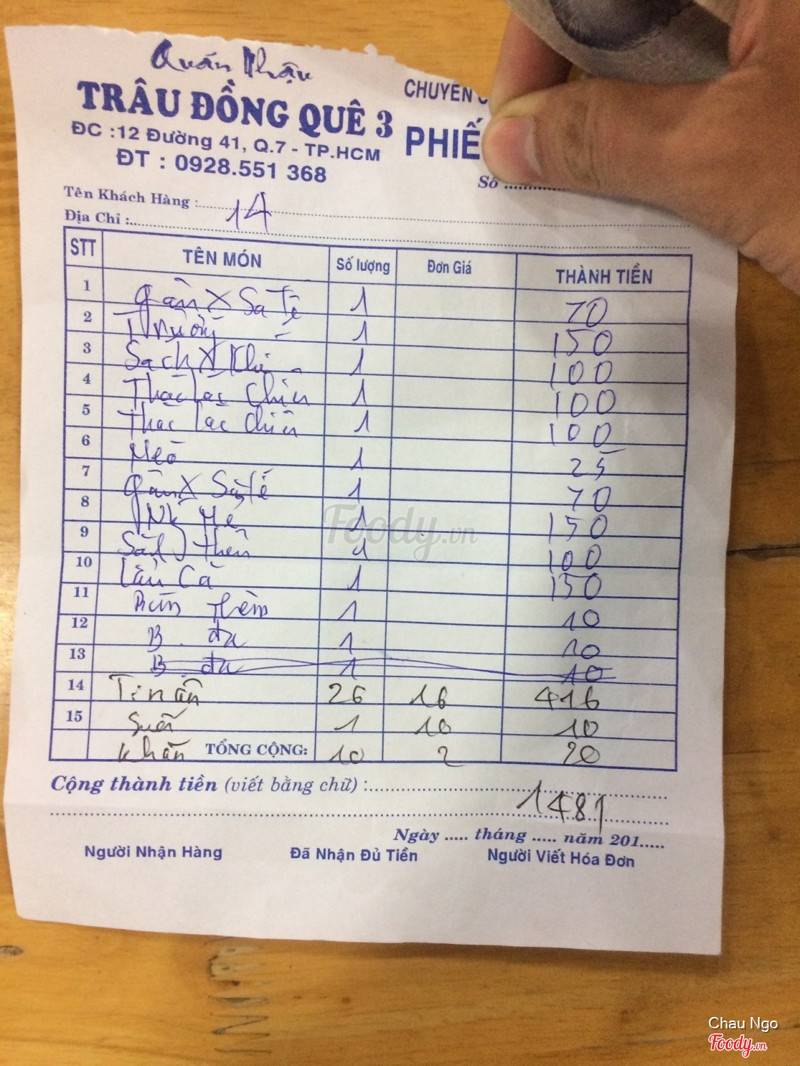 Quán Nhậu
TRÂU ĐỒNG QUÊ 3
CHUYÊN
ĐC :12 Đường 41, Q.7 - TP.HCM
PHIẾ
ĐT : 0928.551 368
Số ..............
Tên Khách Hàng : 14
Địa Chỉ :
STT TÊN MÓN Số lượng Đơn Giá THÀNH TIỀN
1 gân X Sa Tế 1 70
2 1 150
3 Sách X 1 100
4 Thác lác chiên 1 100
5 Thác lác chiên 1 100
6 Mẹo 1 25
7 gân X Sa tế 1 70
8 1 150
9 1 100
10 Lẩu Cá 1 150
11 Bún thêm 1 10
12 B. đa 1 10
13 B đa 1 10
14 26 16 416
15 Suối 1 10 10
Khăn TỔNG CỘNG: 10 2 20
Cộng thành tiền (viết bằng chữ) :
1481
Ngày ..... tháng ..... năm 201.....
Người Nhận Hàng Đã Nhận Đủ Tiền Người Viết Hóa Đơn
Foody.vn
Chau Ngo
Foody.vn